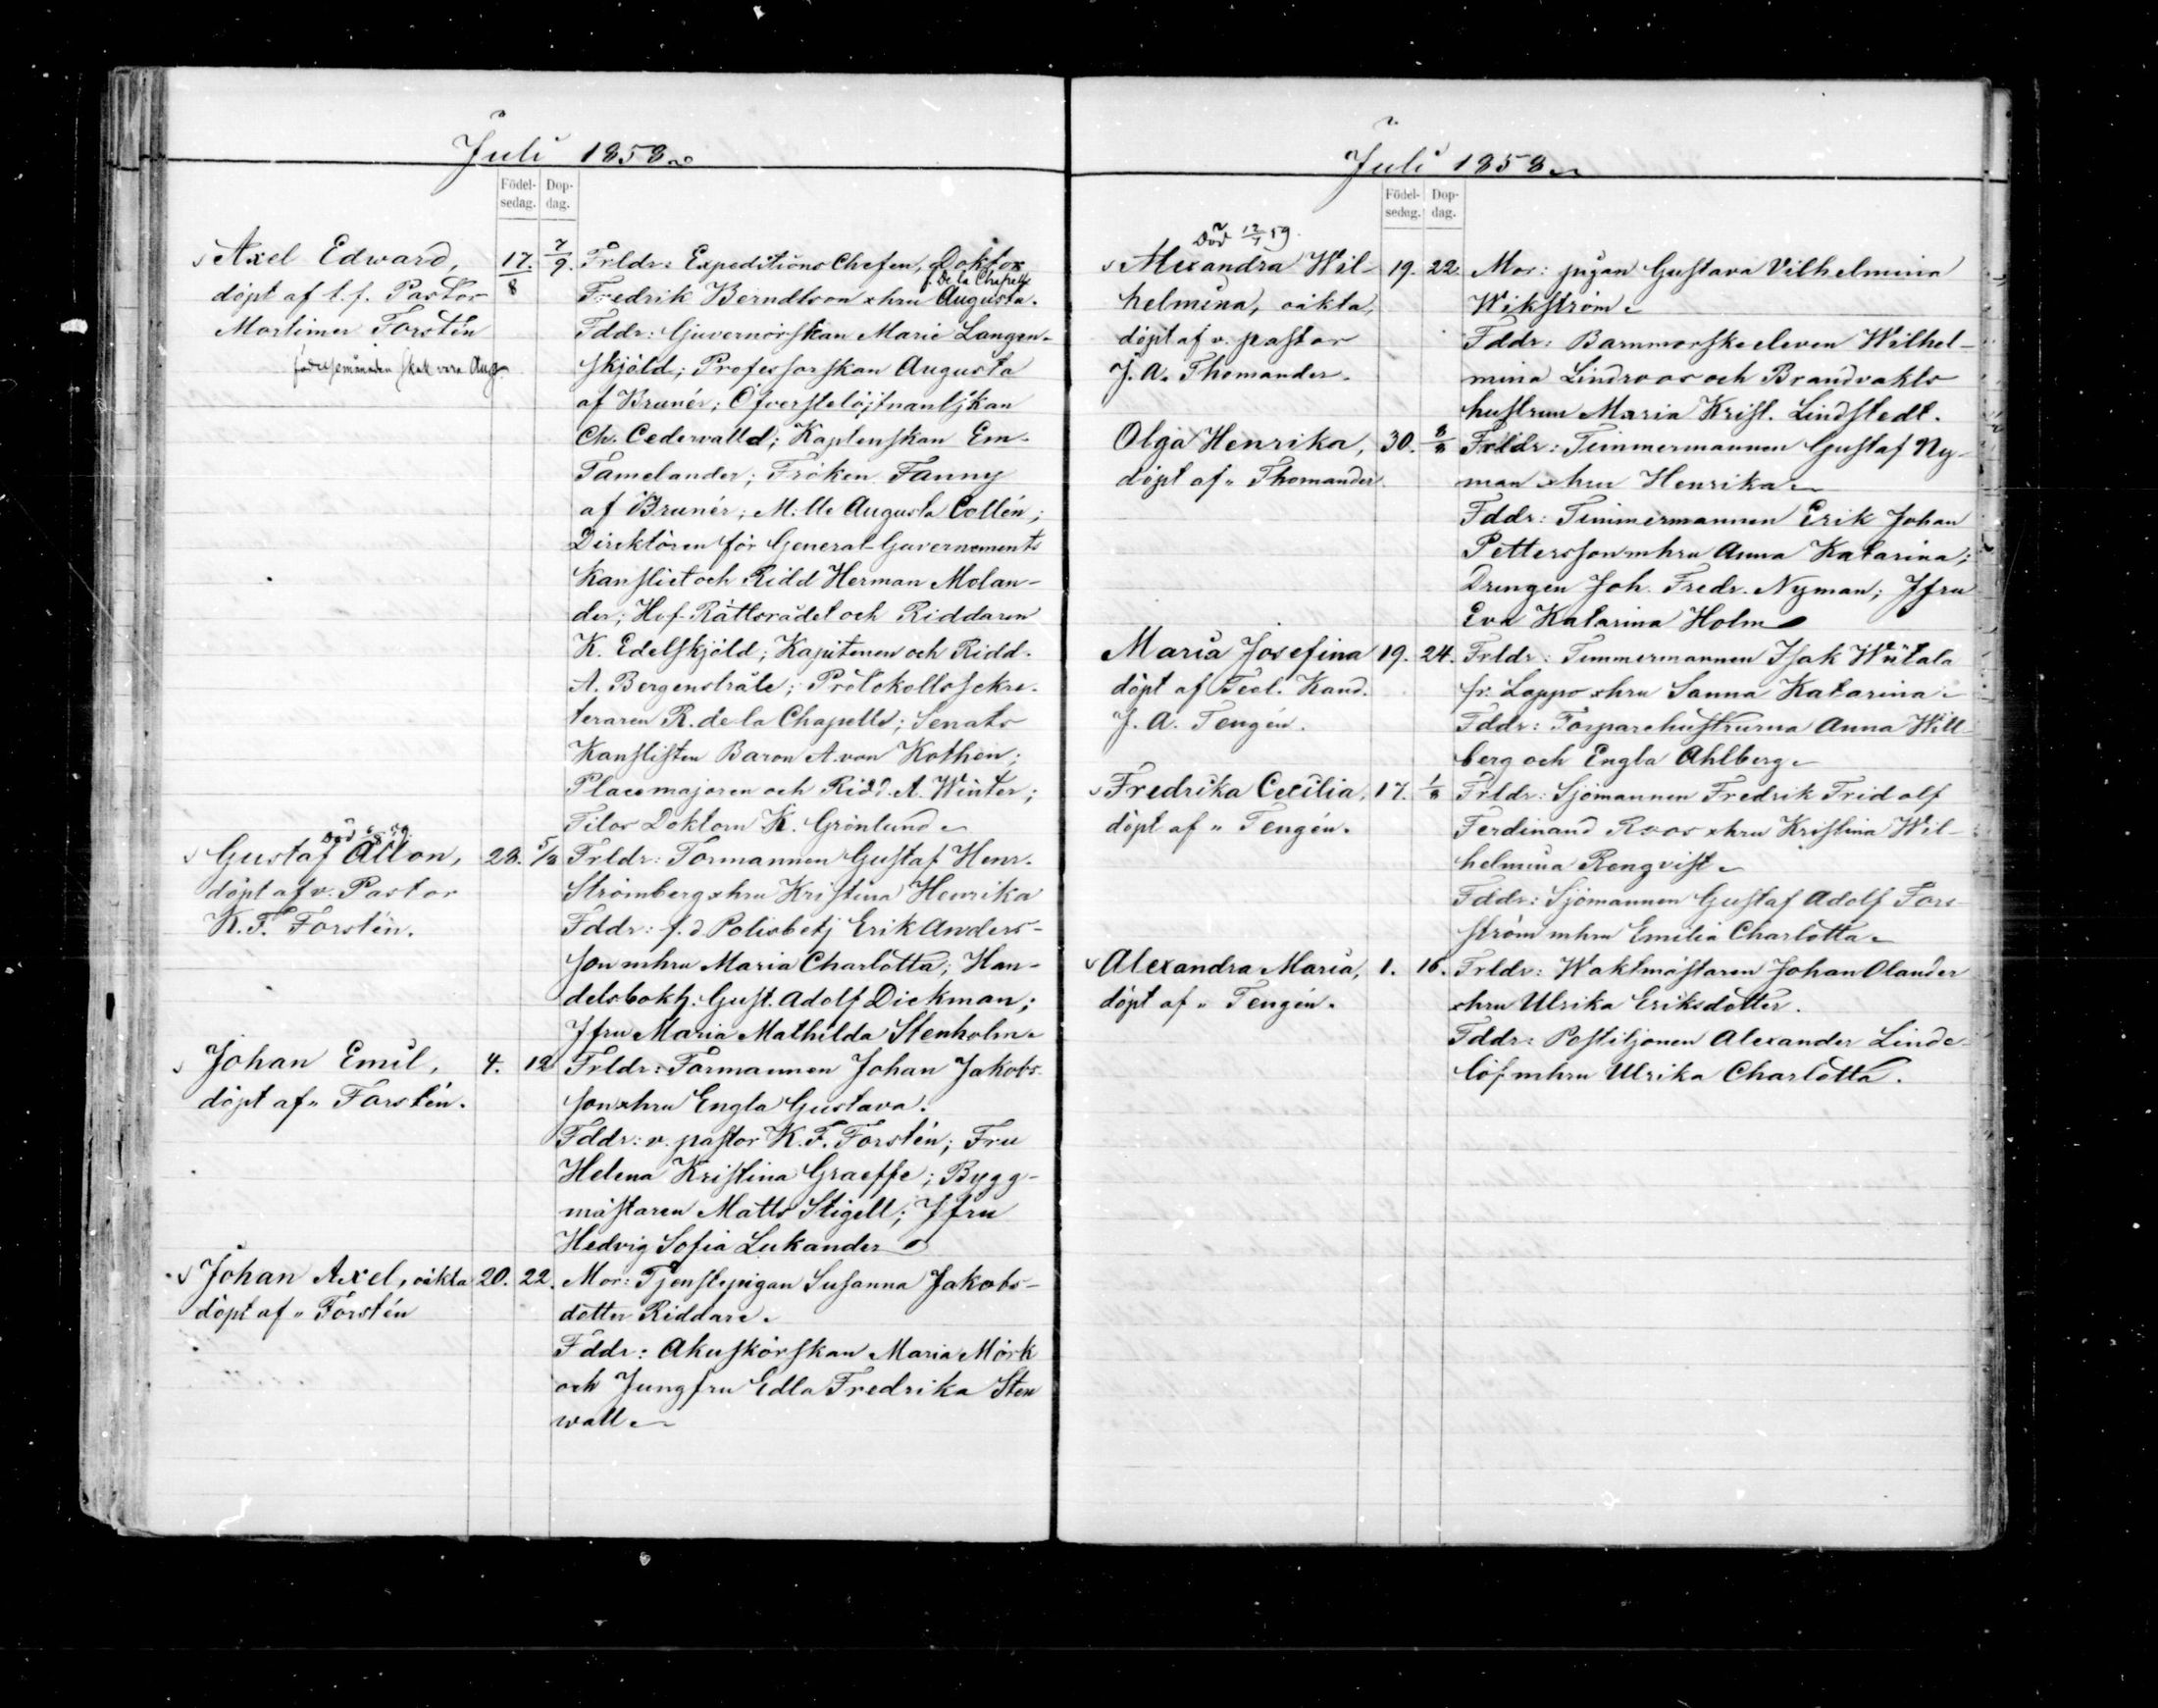 Juli 1858
Födel-
sedag.
Dop-
dag.
Axel Edward,
döpt af t. f. Pastor
Mortimer Forstén
födelsemånaden skall vara Aug.
17.
8
7
9.
Frldr: Expeditions Chefen, Doktor
f. de la Chapelle
Fredrik Berndtson o hru Augusta.
Fddr: Guvernörskan Marie Langen-
skjöld; Professorskan Augusta
af Brunér; Öfverstelöjtnantskan
Ch. Cedervalld; Kaptenskan Em.
Tamelander; Fröken Fanny
af Brunér; M:lle Augusta Collén;
Direktören för General-Guvernements
Kansliet och Ridd Herman Molan-
der; Hof-Rättsrådet och Riddaren
K. Edelskjöld; Kapitenen och Ridd.
A. Bergenstråle; Protokollssekre-
teraren R. de la Chapelle; Senats
Kanslisten Baron A. von Kothen;
Placemajoren och Ridd. A. Winter;
Filos Doktorn K. Grönlund
Död 6/8 59.
Gustaf Allon,
döpt af v. Pastor
K. F. Forstén.
28. 5/8
Frldr: Formannen Gustaf Henr.
Strömberg o hru Kristina Henrika
Fddr: f. d Polisbetj Erik Anders-
son m hru Maria Charlotta; Han-
delsbokh. Gust. Adolf Dickman;
Jfru Maria Mathilda Stenholm.
Johan Emil,
döpt af " Forstén.
4. 12
Frldr: Formannen Johan Jakobs-
son o hru Engla Gustava.
Fddr: v. pastor K. F. Forstén; Fru
Helena Kristina Graeffe; Bygg-
mästaren Matts Stigell; Jfru
Hedvig Sofia Lukander
Johan Axel, oäkta
döpt af " Forstén
20. 22.
Mor: Tjenstepigan Susanna Jakobs-
dotter Riddare.
Fddr: Akuskörskan Maria Mörk
och Jungfru Edla Fredrika Sten
wall.
Juli 1858
Födel-
sedag.
Dop-
dag.
Död 12/7 59.
Alexandra Wil-
helmina, oäkta,
döpt af v. pastor
J. A. Thomander.
19. 22
Mor: pigan Gustava Vilhelmina
Wikström.
Fddr: Barnmorskeeleven Wilhel-
mina Lindroos och Brandvakts
hustrun Maria Krist. Lindstedt.
Olga Henrika,
döpt af " Thomander
30. 8/8
Frldr: Timmermannen Gustaf Ny-
man o hru Henrika
Fddr: Timmermannen Erik Johan
Pettersson m hru Anna Katarina;
Drengen Joh. Fredr. Nyman; Jfru
Eva Katarina Holm
Maria Josefina
döpt af Teol. Kand.
J. A. Tengén.
19. 24.
Frldr: Timmermannen Isak Wiitala
fr. Lappo o hru Sanna Katarina.
Fddr: Torparehustrurna Anna Will-
berg och Engla Ahlberg.
Fredrika Cecilia,
döpt af " Tengén.
17. 1/8
Frldr: Sjömannen Fredrik Fridolf
Ferdinand Roos o hru Kristina Wil-
helmina Renqvist.
Fddr: Sjömannen Gustaf Adolf Fors-
ström m hru Emilia Charlotta.
Alexandra Maria,
döpt af " Tengén.
1. 16.
Frldr: Waktmästaren Johan Olander
o hru Ulrika Eriksdotter.
Fddr: Postiljonen Alexander Linde-
löf m hru Ulrika Charlotta.